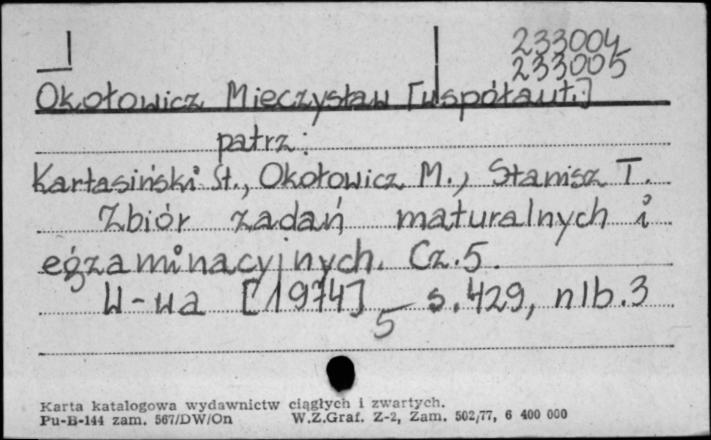 233004
233005
Okołowicz Mieczysław [współaut.]
patrz:
Kartasiński St., Okołowicz M., Stanisz T.
Zbiór zadań maturalnych i
egzaminacyjnych. Cz.5.
W-wa [1974] s.429, nlb.3
5
Karta katalogowa wydawnictw ciągłych i zwartych.
Pu-B-144 zam. 567/DW/On W.Z.Graf. Z-2, Zam. 502/77, 6 400 000